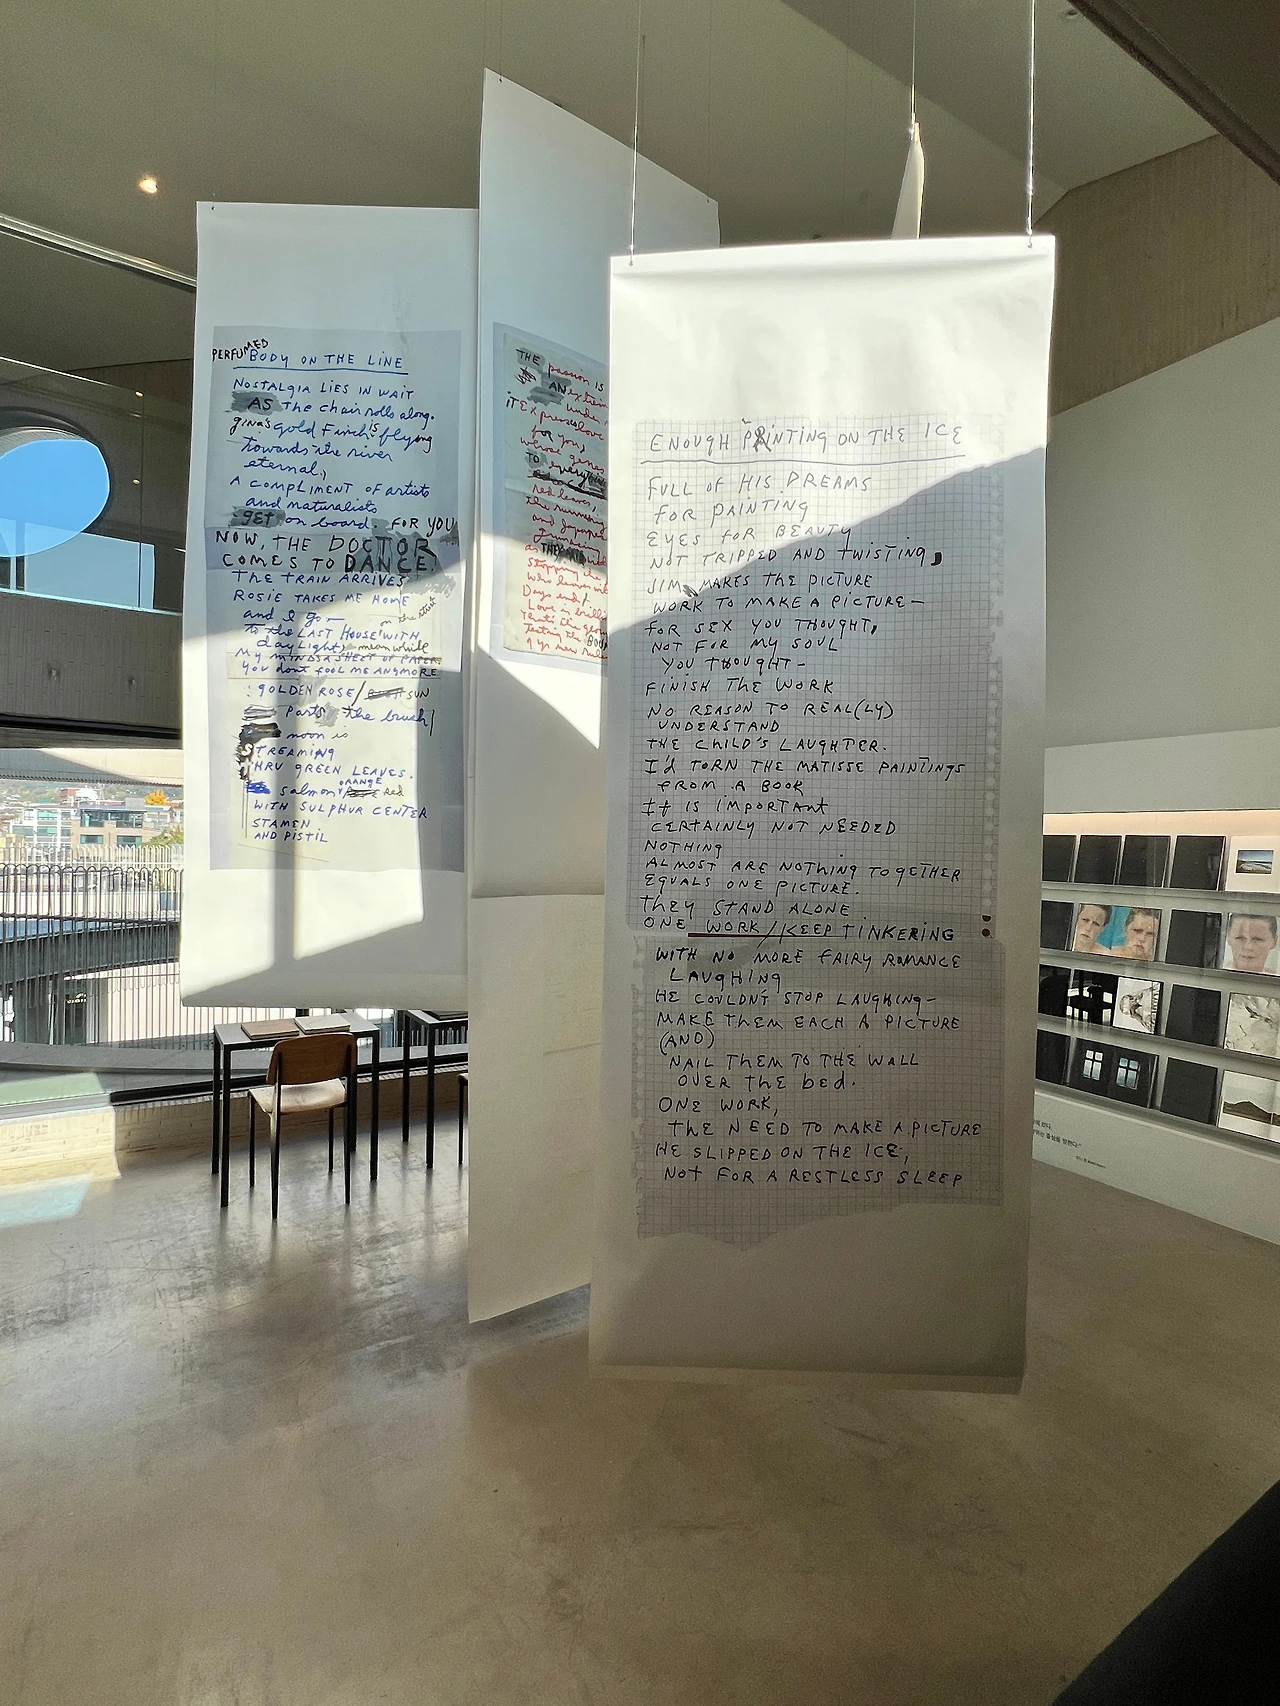 PERFUMED
BODY ON THE LINE
NOSTALGIA LIES IN WAIT
AS the chair rolls along.
gina's gold Finch is flying
towards the river
eternal,
A COMPLIMENT OF artists
and naturalists
get on board. FOR YOU
NOW, THE DOCTOR
COMES TO DANCE.
THE TRAIN ARRIVES
ROSIE TAKES ME HOME
and I go— on the
to the LAST HOUSE WITH
dayLight, meanwhile
MY MINDS A SHEET OF PAPER.
YOU DON'T FOOL ME ANYMORE
: GOLDEN ROSE/ SUN
Parts the brush
moon is
STREAMING
THRU GREEN LEAVES.
ORANGE
salmon/ Red
WITH SULPHUR CENTER
STAMEN
AND PISTIL
THE passion is
AN extrem
under
IT EXpresses love
for you,
whose genes
TO everything
red leaves,
the running
and
as
stopping the
who leaves
Days end/
Love in
That's the
Testing the BODY
ENOUGH PAINTING ON THE ICE
FULL OF HIS DREAMS
FOR PAINTING
EYES FOR BEAUTY
NOT TRIPPED AND TWISTING,
JIM MAKES THE PICTURE
WORK TO MAKE A PICTURE—
FOR SEX YOU THOUGHT,
NOT FOR MY SOUL
YOU THOUGHT—
FINISH THE WORK
NO REASON TO REAL(LY)
UNDERSTAND
THE CHILD'S LAUGHTER.
I'd TORN THE MATISSE PAINTINGS
FROM A BOOK
It IS IMPORTANT
CERTAINLY NOT NEEDED
NOTHING
ALMOST ARE NOTHING TOGETHER
EQUALS ONE PICTURE.
They STAND ALONE
ONE WORK/KEEP TINKERING
WITH NO MORE FAIRY ROMANCE
LAUGHING
HE COULDN'T STOP LAUGHING—
MAKE THEM EACH A PICTURE
(AND)
NAIL THEM TO THE WALL
OVER THE bed.
ONE WORK,
THE NEED TO MAKE A PICTURE
HE SLIPPED ON THE ICE,
NOT FOR A RESTLESS SLEEP